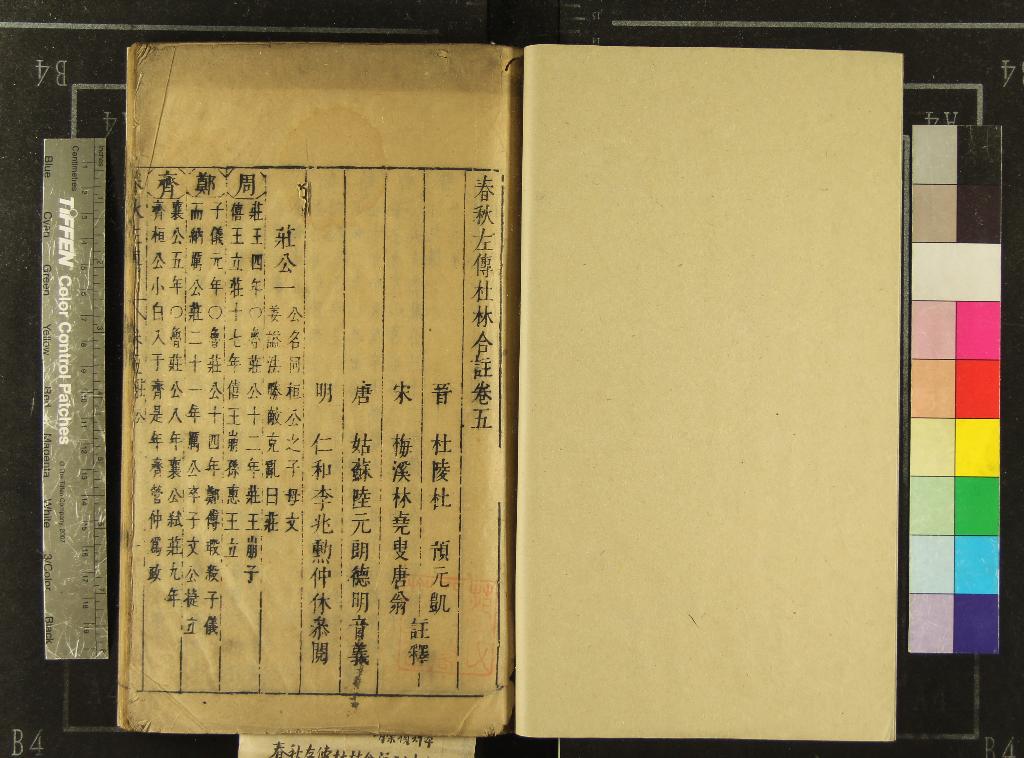 春秋左傳杜林合註卷五
晉 杜陵杜 預元凱
宋 梅溪林堯叟唐翁 註釋
唐 姑蘇陸元朗德明音義
明 仁和李兆勳仲休叅閱
莊公一 公名同桓公之子母文
姜謚法勝敵克亂曰莊
周 莊王四年〇魯莊公十二年莊王崩子
僖王立莊十七年僖王崩孫惠王立
鄭 子儀元年〇魯莊公十四年鄭傅瑕殺子儀
而納厲公莊二十一年厲公卒子文公捷立
齊 襄公五年〇魯莊公八年襄公弑莊九年
齊桓公小白入于齊是年齊管仲爲政
B4
A4
B4
B4
TIFFEN Color Control Patches
© The Tiffen Company, 2007
Centimetres
Inches
Blue
Cyan
Green
Yellow
Red
Magenta
White
3/Color
Black